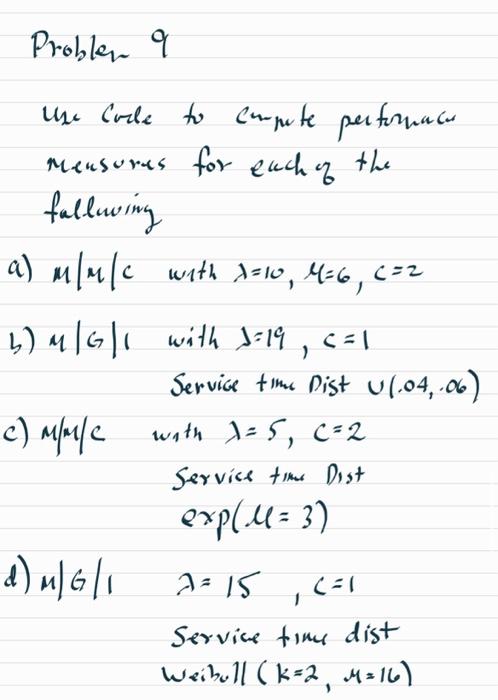 Problem 9
Use Code to compute performance
measures for each of the
following
a) M/M/C with λ=10, M=6, C=2
b) M/G/1 with λ=19, c=1
Service time Dist U(.04, .06)
c) M/M/C with λ=5, C=2
Service time Dist
exp(M=3)
d) M/G/1 λ=15, c=1
Service time dist
Weibull (k=2, M=16)